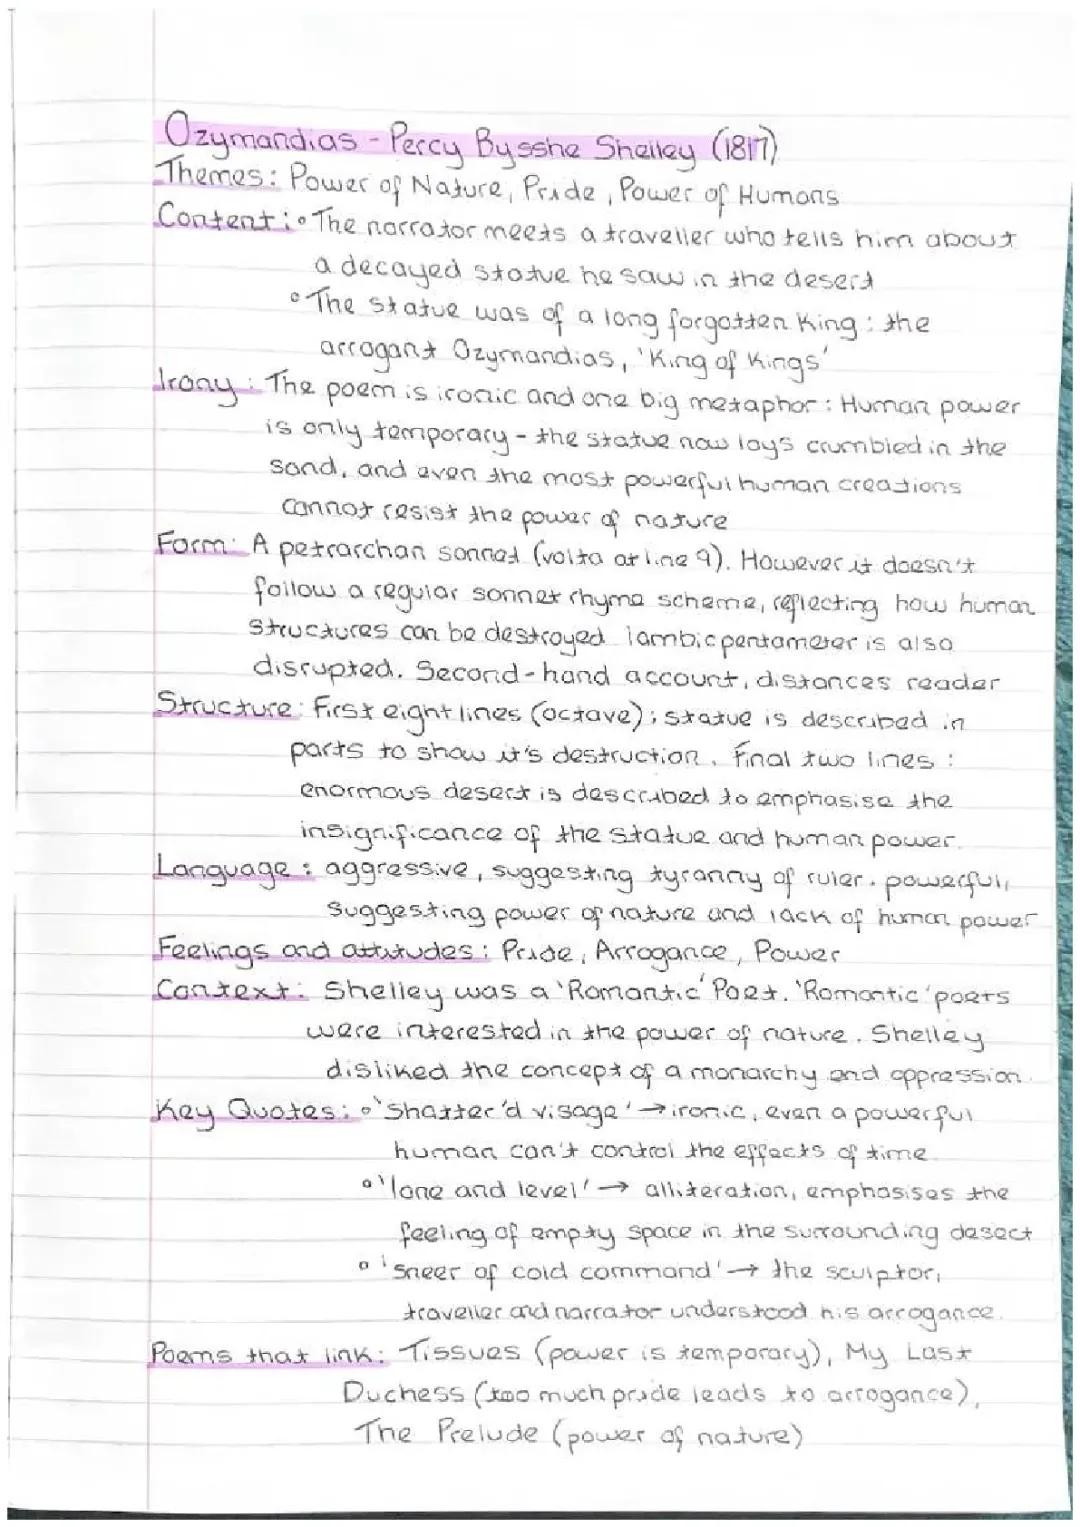 Ozymandias - Percy Bysshe Shelley (1817)
Themes: Power of Nature, Pride, Power of Humans
Content: • The narrator meets a traveller who tells him about
a decayed statue he saw in the desert
• The statue was of a long forgotten King: the
arrogant Ozymandias, 'King of Kings'
Irony: The poem is ironic and one big metaphor: Human power
is only temporary - the statue now lays crumbled in the
sand, and even the most powerful human creations
cannot resist the power of nature
Form: A petrarchan sonnet (volta at line 9). However it doesn't
follow a regular sonnet rhyme scheme, reflecting how human
structures can be destroyed. Iambic pentameter is also
disrupted. Second-hand account, distances reader
Structure: First eight lines (octave); statue is described in
parts to show it's destruction. Final two lines:
enormous desert is described to emphasise the
insignificance of the statue and human power.
Language: aggressive, suggesting tyranny of ruler. powerful,
suggesting power of nature and lack of human power
Feelings and attitudes: Pride, Arrogance, Power
Context: Shelley was a 'Romantic' Poet. 'Romantic' poets
were interested in the power of nature. Shelley
disliked the concept of a monarchy and oppression.
Key Quotes: • 'Shatter'd visage' → ironic, even a powerful
human can't control the effects of time.
• 'lone and level' → alliteration, emphasises the
feeling of empty space in the surrounding desert
• 'sneer of cold command' → the sculptor,
traveller and narrator understood his arrogance.
Poems that link: Tissues (power is temporary), My Last
Duchess (too much pride leads to arrogance),
The Prelude (power of nature)